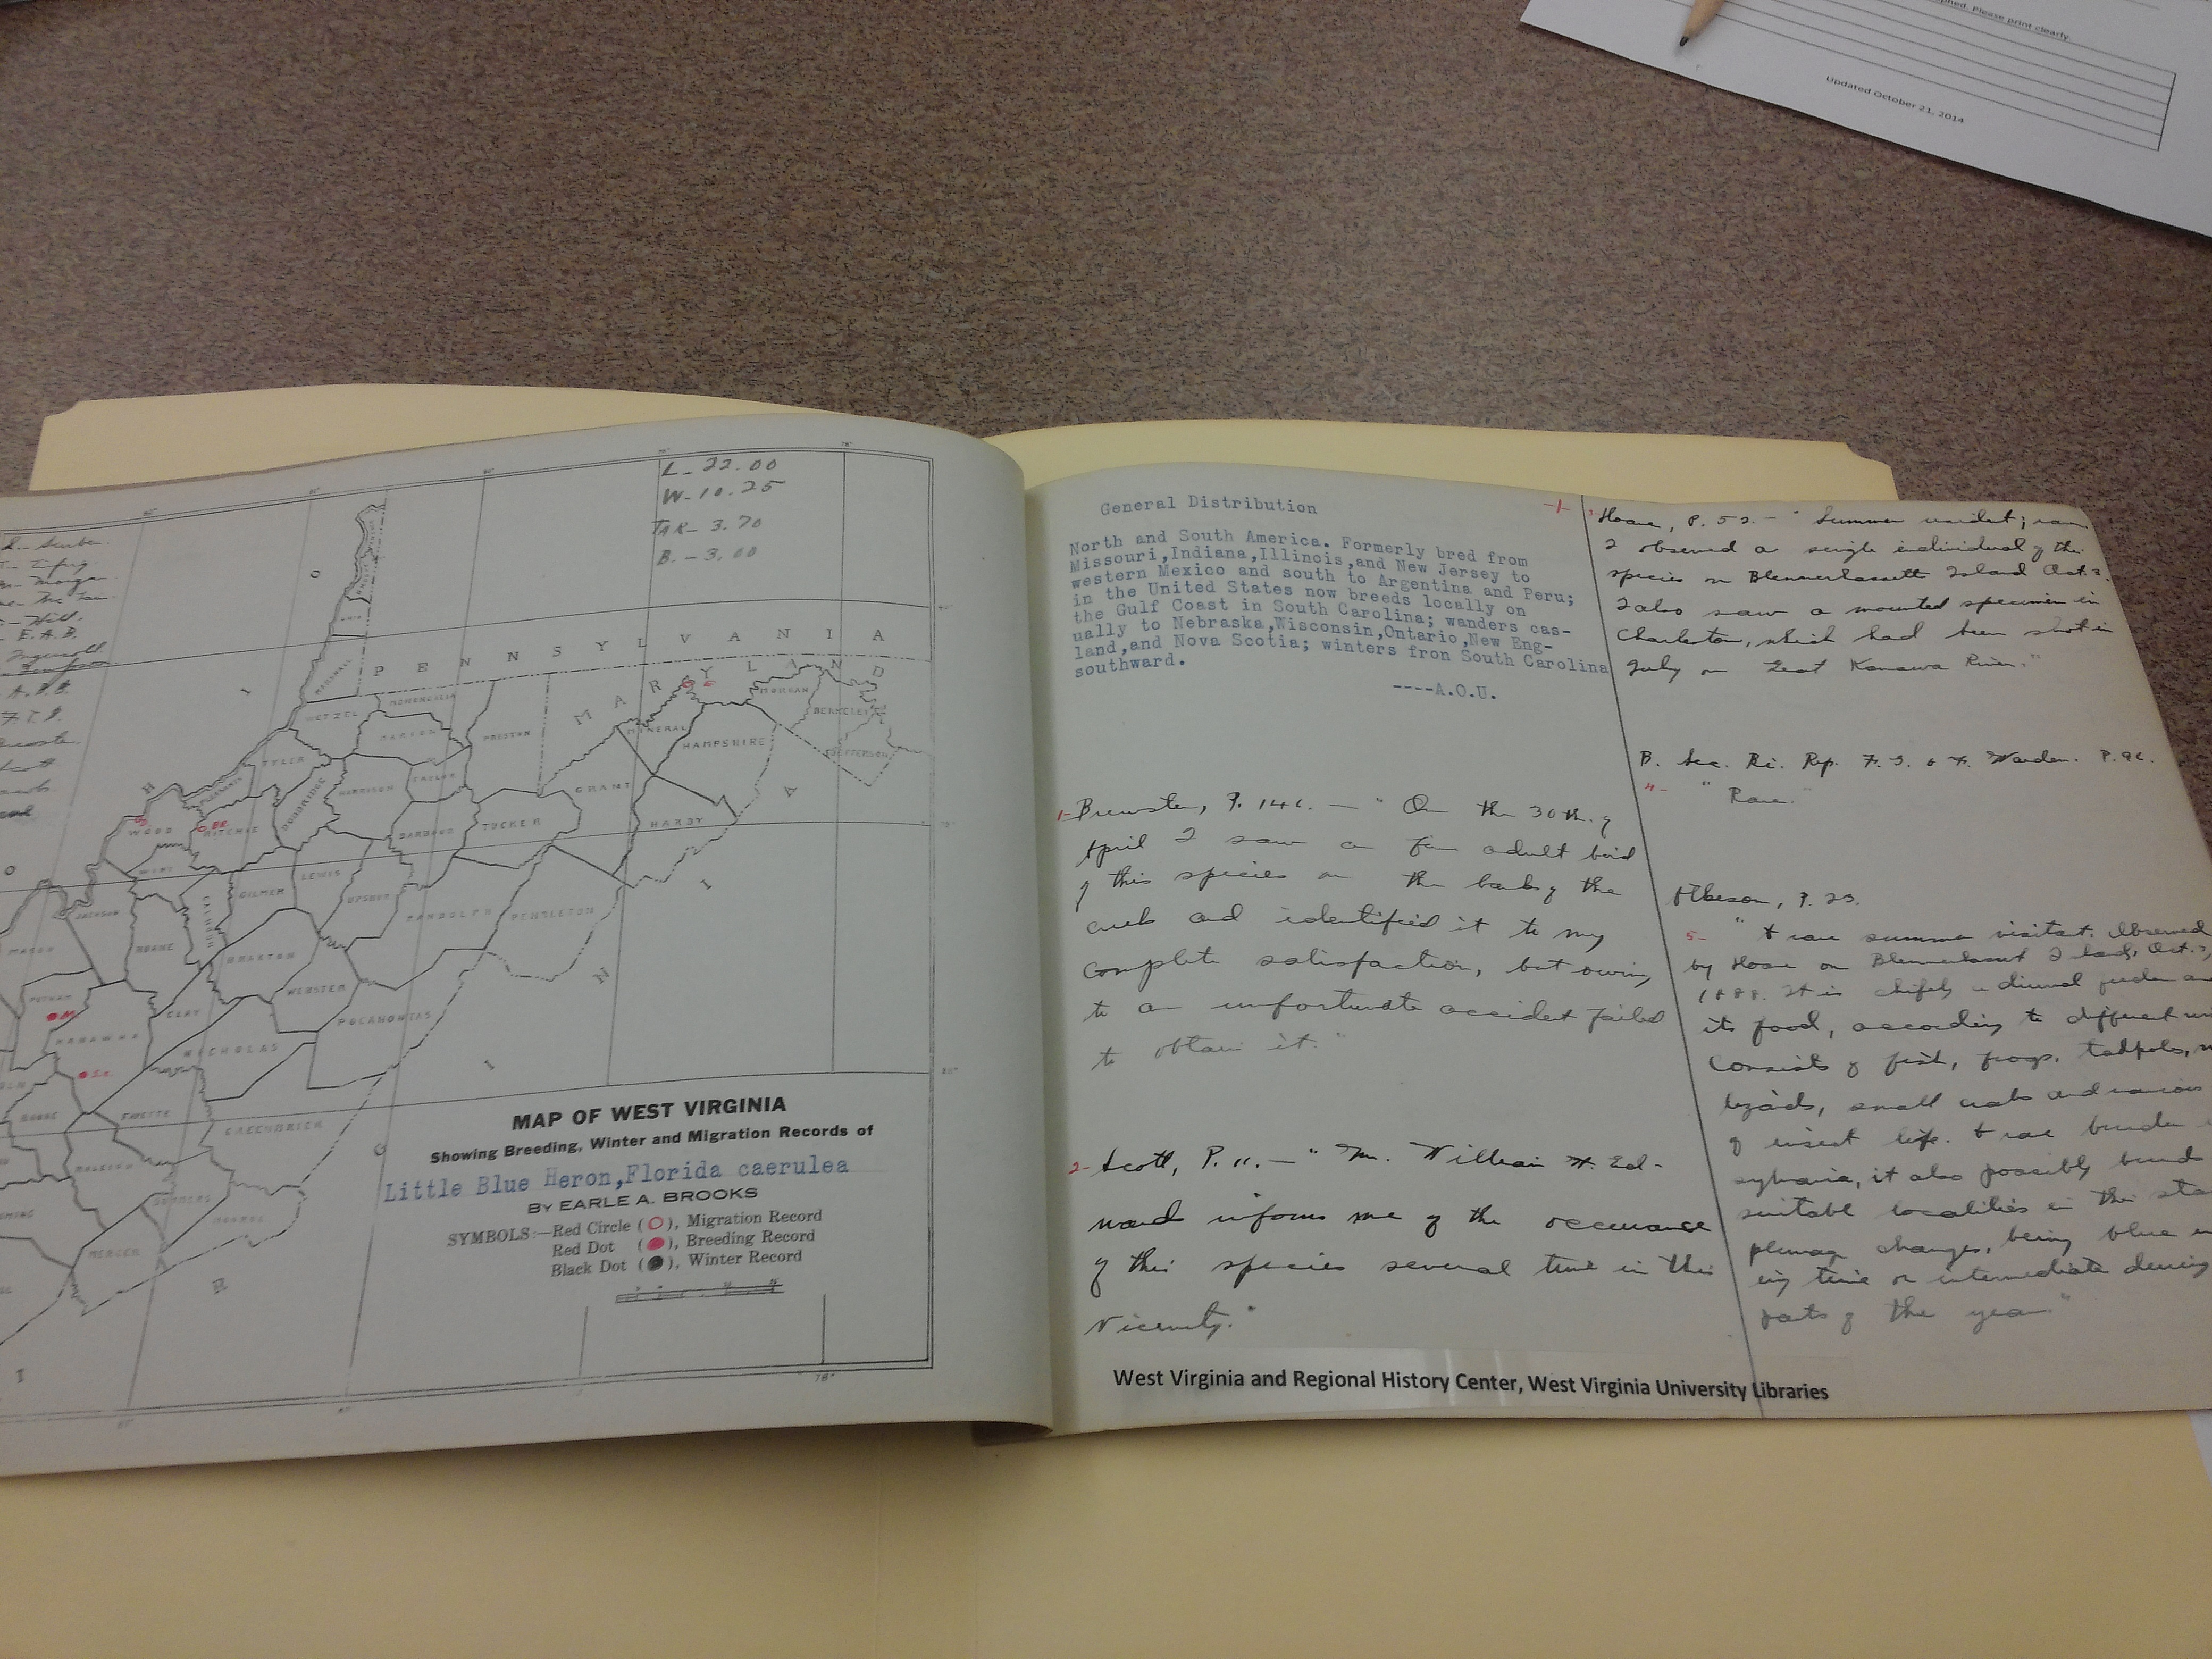 Please print clearly.
Updated October 21, 2014
L- 22.00
W- 10.25
TAR- 3.70
B. - 3.00
E.A.B.
PENNSYLVANIA
MARYLAND
MARSHALL
WETZEL
MONONGALIA
MARION
PRESTON
MINERAL
HAMPSHIRE
MORGAN
BERKELEY
JEFFERSON
TYLER
PLEASANTS
DODDRIDGE
HARRISON
TAYLOR
GRANT
WOOD
RITCHIE
BARBOUR
TUCKER
HARDY
WIRT
CALHOUN
GILMER
LEWIS
UPSHUR
RANDOLPH
PENDLETON
JACKSON
MASON
ROANE
BRAXTON
WEBSTER
PUTNAM
KANAWHA
CLAY
NICHOLAS
POCAHONTAS
BOONE
FAYETTE
GREENBRIER
RALEIGH
SUMMERS
MONROE
MERCER
MAP OF WEST VIRGINIA
Showing Breeding, Winter and Migration Records of
Little Blue Heron,Florida caerulea
BY EARLE A. BROOKS
SYMBOLS:—Red Circle ( ), Migration Record
Red Dot ( ), Breeding Record
Black Dot ( ), Winter Record
78°
General Distribution
North and South America. Formerly bred from
Missouri,Indiana,Illinois,and New Jersey to
western Mexico and south to Argentina and Peru;
in the United States now breeds locally on
the Gulf Coast in South Carolina; wanders cas-
ually to Nebraska,Wisconsin,Ontario,New Eng-
land,and Nova Scotia; winters fron South Carolina
southward.
----A.O.U.
1- Brewster, P. 146. — "On the 30th. of
April I saw a fine adult bird
of this species on the bank of the
creek and identified it to my
complete satisfaction, but owing
to an unfortunate accident failed
to obtain it."
2- Scott, P. 11. — "Mr. William H. Ed-
ward informs me of the occurance
of this species several time in this
vicinity."
3- P. 52. — "Summer resident; rare
I observed a single individual of the
species on Blennerhassett Island Oct.
I also saw a mounted specimen in
Charleston, which had been shot in
July on Great Kanawa River."
B. Sec. Bi. Rep. F. G. & F. Warden. P. 96.
4- "Rare."
P. 23.
5- "A rare summer visitat. Observed
by on Blennerhasset Island, Oct.
1888. It is chiefly a diurnal feeder
its food, according to different
consists of fish, frogs, tadpoles,
lizards, small crabs and various
of insect life. A rare breeder
sylvania, it also possibly breeds
suitable localities in this
plumage changes, being blue
ing time or intermediate during
parts of the year"
West Virginia and Regional History Center, West Virginia University Libraries